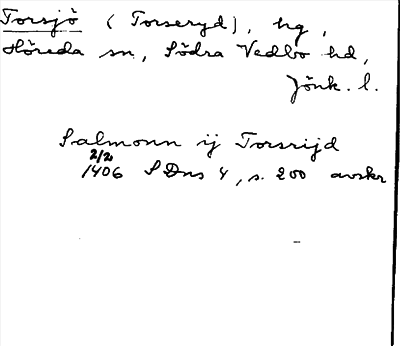 Torsjö (Torseryd), hg,
Höreda sn, Södra Vedbo hd,
Jönk. l.
Salmonn ij Torsrijd
2/2
1406 SDns 4, s. 200 avskr